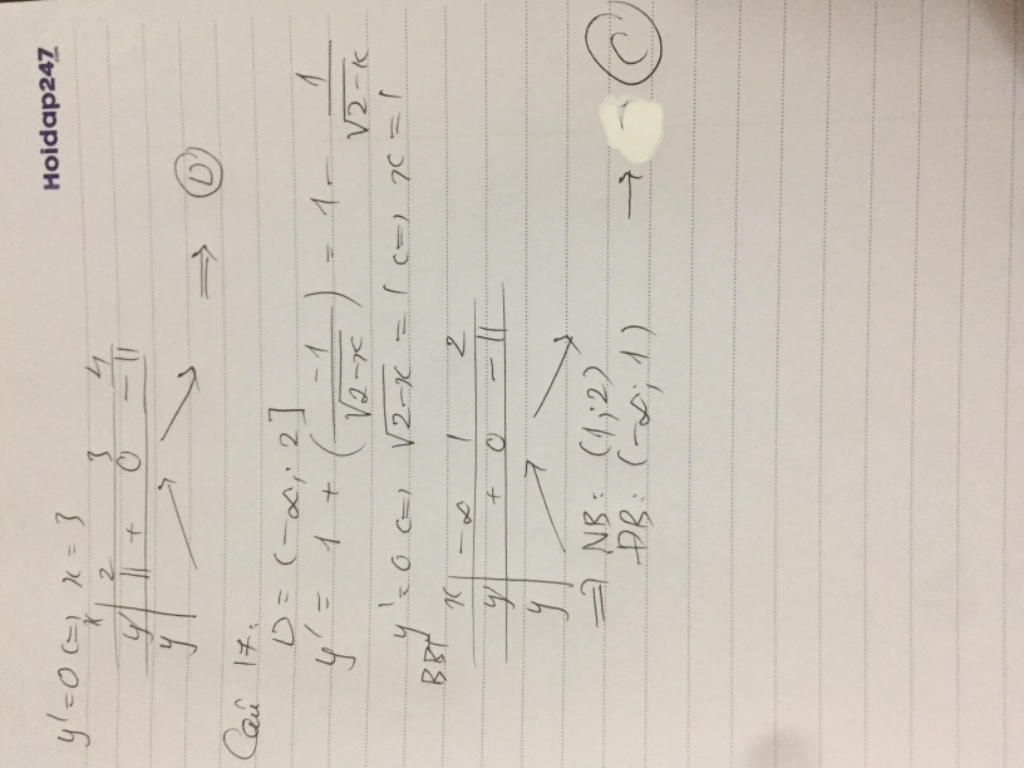 Hoidap247
y' = 0 <=> x = 3
x 2 3 4
y' || + 0 - ||
y ↗ ↘ => D
Câu 17:
D = (-∞; 2]
y' = 1 + (-1/√(2-x)) = 1 - 1/√(2-x)
y' = 0 <=> √(2-x) = 1 <=> x = 1
BBT
x -∞ 1 2
y' + 0 - ||
y ↗ ↘
=> NB: (1; 2)
ĐB: (-∞; 1) → C